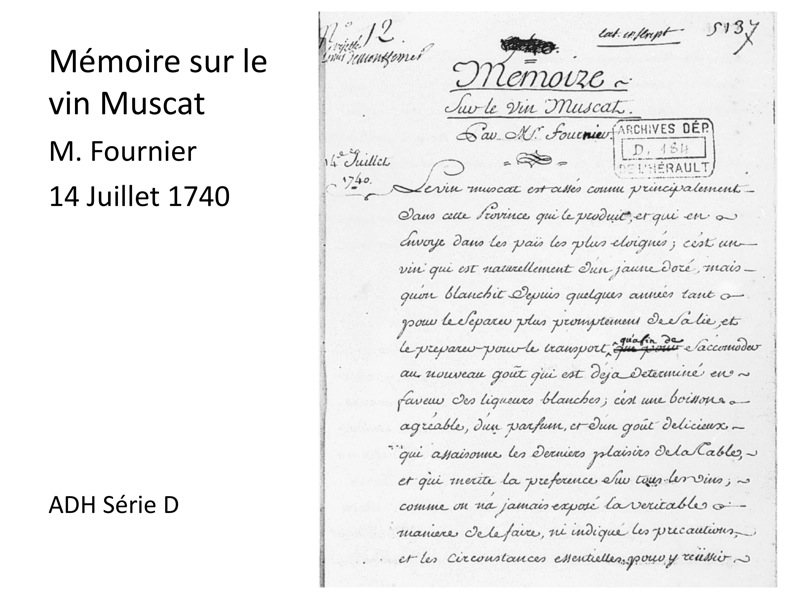 Mémoire sur le
vin Muscat
M. Fournier
14 Juillet 1740
ADH Série D
N.º 12.
lat. inscript
5137
Memoire
Sur le Vin Muscat.
Par Mr. Fournier
ARCHIVES DÉP.
D. 184
DE L'HÉRAULT
14e Juillet
1740.
Le vin muscat est assés connu principalement
dans cette Province qui le produit, et qui en
Envoye dans les païs les plus eloignés; c'est un
vin qui est naturellement d'un jaune doré, mais
qu'on blanchit depuis quelques années tant
pour le Separer plus promptement de Sa lie, et
le preparer pour le transport, qu'afin de s'accomoder
au nouveau goût qui est déja determiné en
faveur des liqueurs blanches; c'est une boisson
agréable, d'un parfum, et d'un goût delicieux
qui assaisonne les derniers plaisirs de la Table,
et qui merite la preference Sur tous les vins;
comme on n'a jamais exposé la veritable
maniere de le faire, ni indiqué les precautions,
et les Circonstances essentielles, pour y reüssir